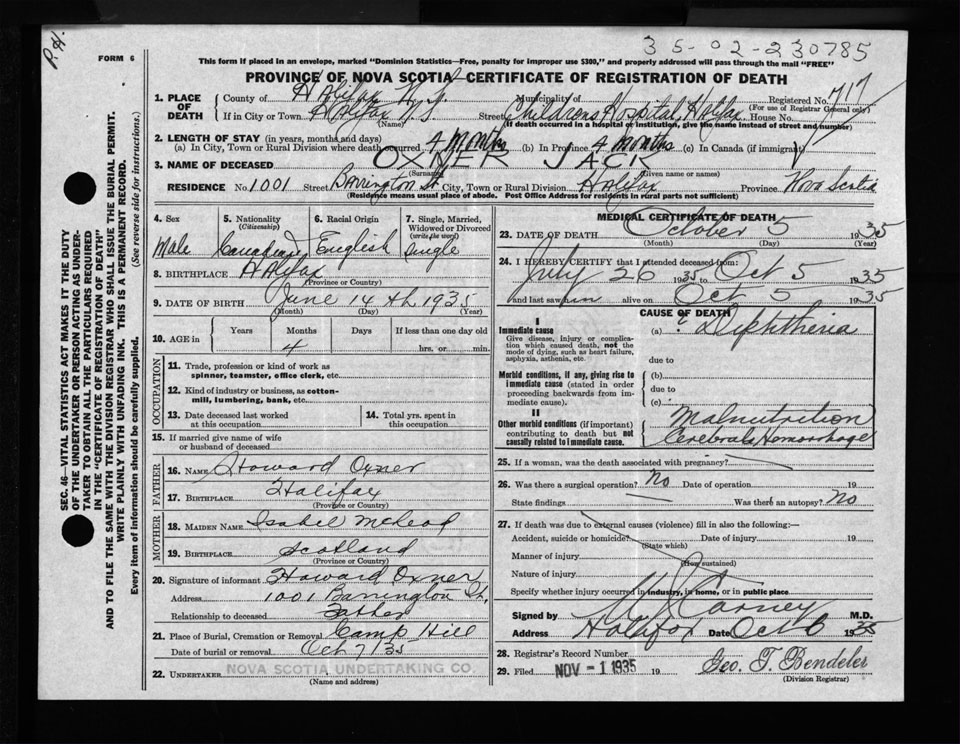 P.H.
35-02-230785
FORM 6
This form if placed in an envelope, marked "Dominion Statistics—Free, penalty for improper use $300," and properly addressed will pass through the mail "FREE"
PROVINCE OF NOVA SCOTIA—CERTIFICATE OF REGISTRATION OF DEATH
1. PLACE OF DEATH
County of Halifax N.S. Municipality of Registered No. 717
(For use of Registrar General only)
If in City or Town Halifax N.S. Street Childrens Hospital, Halifax House No.
(Name) (If death occurred in a hospital or institution, give the name instead of street and number)
2. LENGTH OF STAY (in years, months and days)
(a) In City, Town or Rural Division where death occurred 4 months (b) In Province 4 months (c) In Canada (if immigrant)
3. NAME OF DECEASED OXNER JACK
(Surname) (Given name or names)
RESIDENCE No. 1001 Street Barrington St City, Town or Rural Division Halifax Province Nova Scotia
(Residence means usual place of abode. Post Office Address for residents in rural parts not sufficient)
4. Sex Male
5. Nationality (Citizenship) Canadian
6. Racial Origin English
7. Single, Married, Widowed or Divorced (write the word) Single
8. BIRTHPLACE Halifax
(Province or Country)
9. DATE OF BIRTH June 14th 1935
(Month) (Day) (Year)
10. AGE in Years Months Days If less than one day old
4 hrs. or min.
OCCUPATION
11. Trade, profession or kind of work as spinner, teamster, office clerk, etc.
12. Kind of industry or business, as cotton-mill, lumbering, bank, etc.
13. Date deceased last worked at this occupation
14. Total yrs. spent in this occupation
15. If married give name of wife or husband of deceased
FATHER
16. NAME Howard Oxner
17. BIRTHPLACE Halifax
(Province or Country)
MOTHER
18. MAIDEN NAME Isabel McLeod
19. BIRTHPLACE Scotland
(Province or Country)
20. Signature of informant Howard Oxner
Address 1001 Barrington St,
Relationship to deceased Father
21. Place of Burial, Cremation or Removal Camp Hill
Date of burial or removal Oct 7/35
22. UNDERTAKER NOVA SCOTIA UNDERTAKING CO.
(Name and address)
MEDICAL CERTIFICATE OF DEATH
23. DATE OF DEATH October 5 1935
(Month) (Day) (Year)
24. I HEREBY CERTIFY that I attended deceased from:
July 26 1935 to Oct 5 1935
and last saw him alive on Oct 5 1935
CAUSE OF DEATH
I
Immediate cause
Give disease, injury or complication which caused death, not the mode of dying, such as heart failure, asphyxia, asthenia, etc.
(a) ? Diphtheria
due to
Morbid conditions, if any, giving rise to immediate cause (stated in order proceeding backwards from immediate cause).
(b)
due to
(c)
II
Other morbid conditions (if important) contributing to death but not causally related to immediate cause.
Malnutrition
Cerebral Hemorrhage
25. If a woman, was the death associated with pregnancy?
26. Was there a surgical operation? No Date of operation 19
State findings Was there an autopsy? No
27. If death was due to external causes (violence) fill in also the following:—
Accident, suicide or homicide? Date of injury 19
(State which)
Manner of injury
(How sustained)
Nature of injury
Specify whether injury occurred in industry, in home, or in public place
Signed by Carney M.D.
Address Halifax Date Oct 6 1935
28. Registrar's Record Number
29. Filed NOV -1 1935 19 Geo. T. Bendeler
(Division Registrar)
SEC. 46—VITAL STATISTICS ACT MAKES IT THE DUTY
OF THE UNDERTAKER OR PERSON ACTING AS UNDER-
TAKER TO OBTAIN ALL THE PARTICULARS REQUIRED
IN THE "CERTIFICATE OF REGISTRATION OF DEATH"
AND TO FILE THE SAME WITH THE DIVISION REGISTRAR WHO SHALL ISSUE THE BURIAL PERMIT.
WRITE PLAINLY WITH UNFADING INK. THIS IS A PERMANENT RECORD.
Every item of information should be carefully supplied. (See reverse side for instructions.)